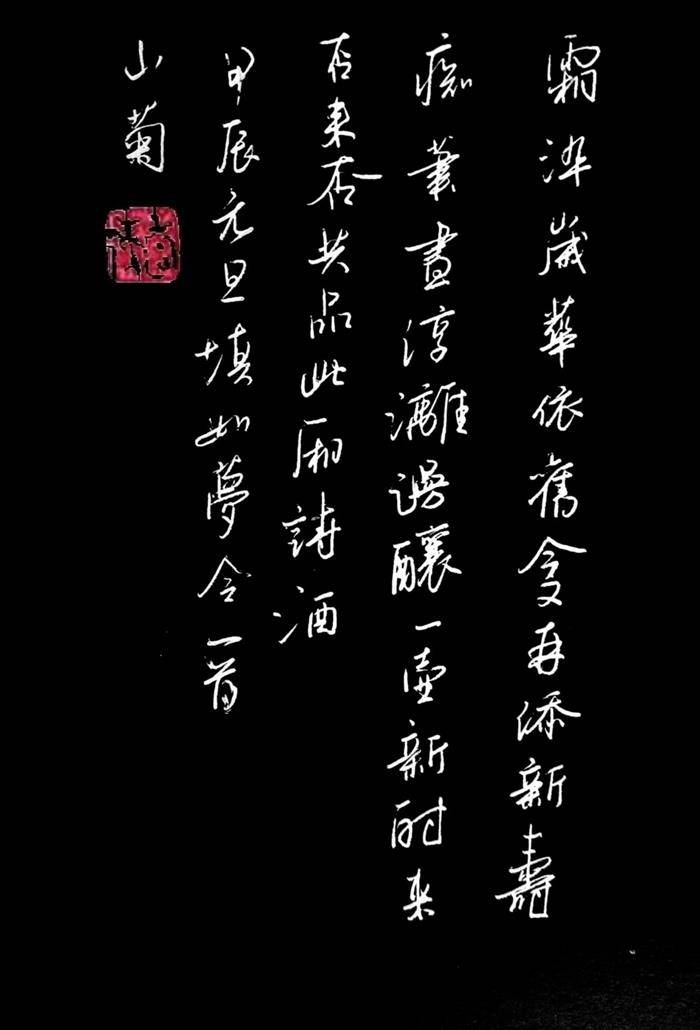 霜染歲華依舊今又再添新壽
痴筆畫淳漓釀一壺新酎来
否来否共品此厢詩酒
甲辰元旦填如夢令一首
山菊